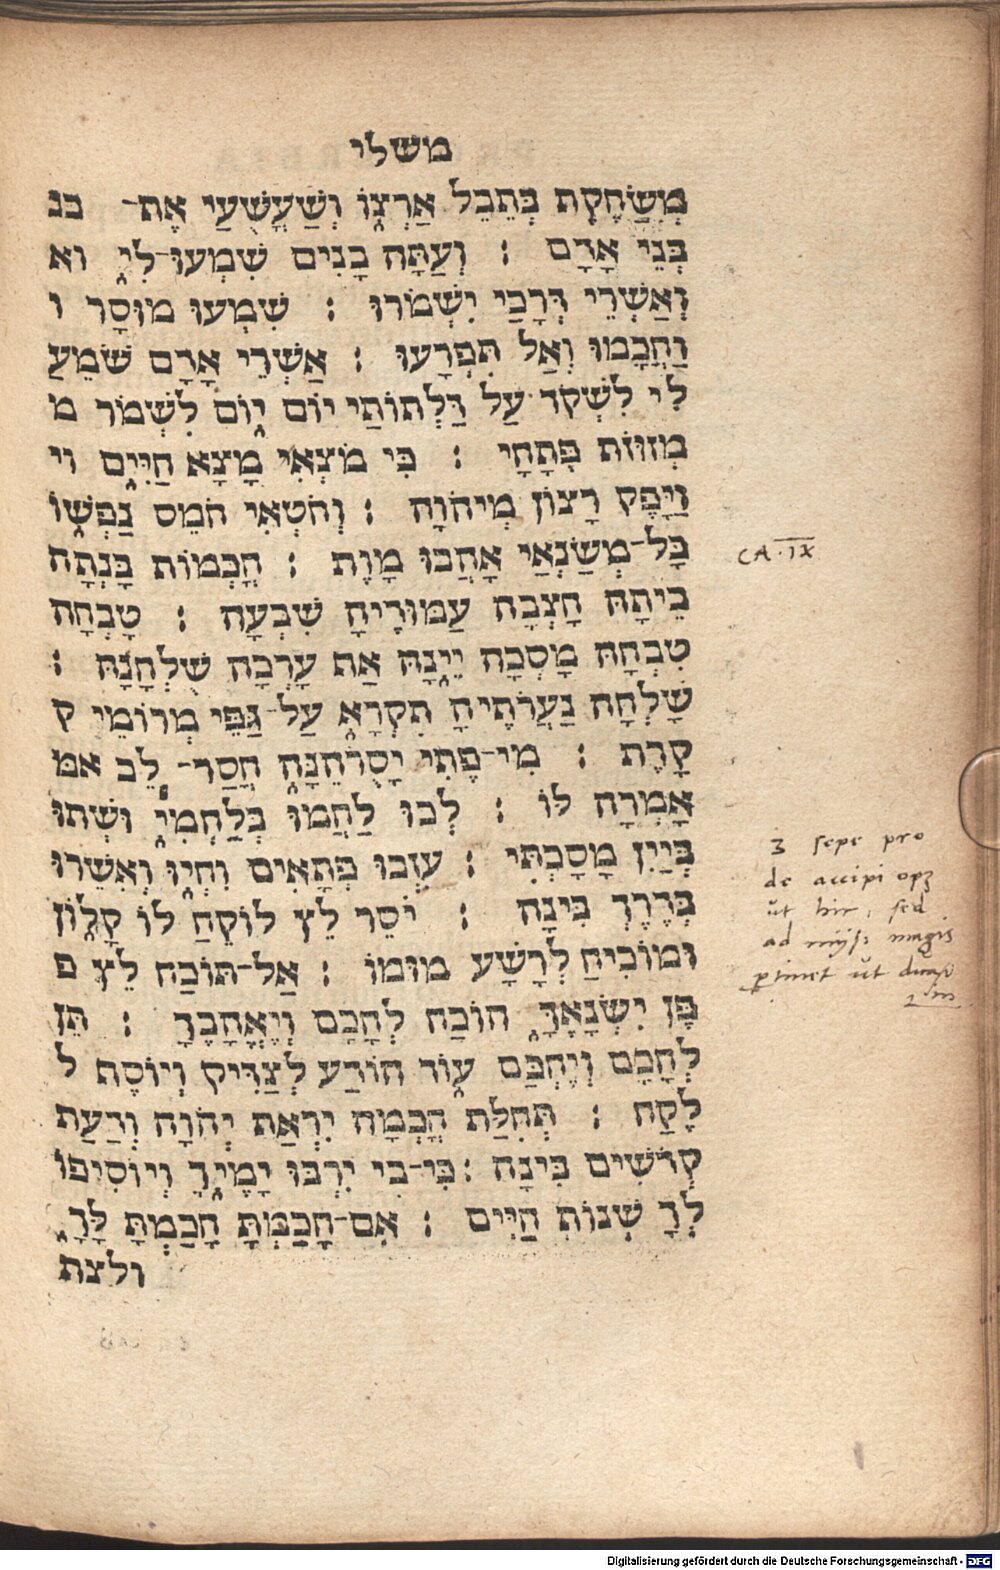 משלי
מְשַׂחֶקֶת בְּתֵבֵל אַרְצוֹ וְשַׁעֲשֻׁעַי אֶת־ בנ
בְּנֵי אָדָם : וְעַתָּה בָנִים שִׁמְעוּ־לִי וא
וְאַשְׁרֵי דְּרָכַי יִשְׁמֹרוּ : שִׁמְעוּ מוּסָר ו
וַחֲכָמוּ וְאַל תִּפְרָעוּ : אַשְׁרֵי אָדָם שֹׁמֵעַ
לִי לִשְׁקֹד עַל דַּלְתוֹתַי יוֹם יוֹם לִשְׁמֹר מ
מְזוּזֹת פְּתָחָי : כִּי מֹצְאִי מָצָא חַיִּים וי
וַיָּפֶק רָצוֹן מְיהֹוָה : וְחֹטְאִי חֹמֵס נַפְשׁוֹ
כָּל־מְשַׂנְאַי אָהֲבוּ מָוֶת : חָכְמוֹת בָּנְתָה
בֵיתָהּ חָצְבָה עַמּוּדֶיהָ שִׁבְעָה : טָבְחָה
טִבְחָהּ מָסְכָה יֵינָהּ אַת עָרְכָה שֻׁלְחָנָהּ :
שָׁלְחָה נַעֲרֹתֶיהָ תִקְרָא עַל־גַּפֵּי מְרוֹמֵי ק
קָרֶת : מִי־פֶתִי יָסֻרהֵנָּה חֲסַר־ לֵב אמ
אָמְרָה לּוֹ : לְכוּ לַחֲמוּ בְלַחְמִי וּשְׁתוּ
בְּיַיִן מָסָכְתִּי : עִזְבוּ פְתָאיִם וִחְיוּ וְאִשְׁרוּ
בְּדֶרֶךְ בִּינָה : יֹסֵר לֵץ לוֹקֵחַ לוֹ קָלוֹן
וּמוֹכִיחַ לְרָשָׁע מוּמוֹ : אַל־תּוֹכַח לֵץ פ
פֶּן יִשְׂנָאֶךָּ הוֹכַח לְחָכָם וְיֶאֱהָבֶךָ : תֵּן
לְחָכָם וְיֶחְכַּם עוֹד הוֹדַע לְצַדִּיק וְיוֹסֶף ל
לֶקַח : תְּחִלַּת חָכְמָה יִרְאַת יְהֹוָה וְדַעַת
קְדֹשִׁים בִּינָה : כִּי־בִי יִרְבּוּ יָמֶיךָ וְיוֹסִיפוּ
לְךָ שְׁנוֹת חַיִּים : אִם־חָכַמְתָּ חָכַמְתָּ לָּךְ
ולצת
CA·IX
3 sepe pro
de accipi
ut hic, sed
ad magis
ut
Digitalisierung gefördert durch die Deutsche Forschungsgemeinschaft - DFG